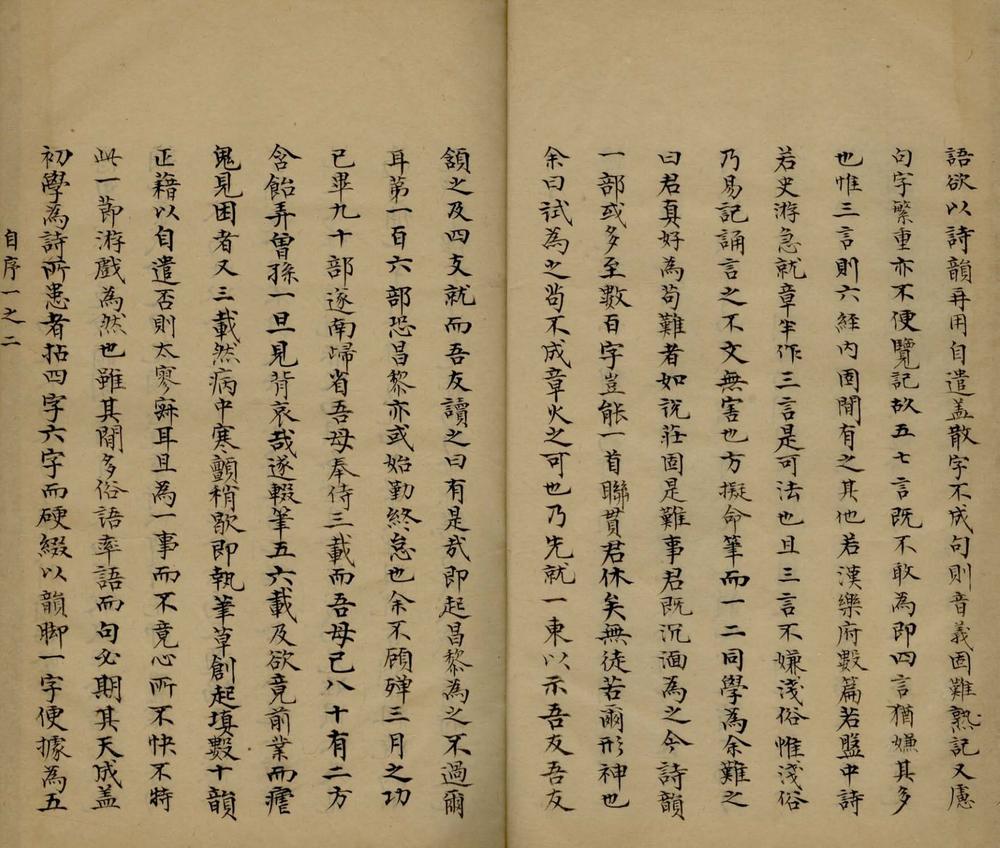 語欲以詩韻再用自遣盖散字不成句則音義固難熟記又慮
句字繁重亦不便覽記故五七言既不敢為即四言猶嫌其多
也惟三言則六經內固間有之其他若漢樂府數篇若盤中詩
若史游急就章半作三言是可法也且三言不嫌淺俗惟淺俗
乃易記誦言之不文無害也方擬命筆而一二同學為余難之
曰君真好為苟難者如說莊固是難事君既沉湎為之今詩韻
一部或多至數百字豈能一首聯貫君休矣無徒苦爾形神也
余曰試為之苟不成章火之可也乃先就一東以示吾友吾友
頷之及四支就而吾友讀之曰有是哉即起昌黎為之不過爾
耳第一百六部恐昌黎亦或始勤終怠也余不顧殫三月之功
已畢九十部遂南歸省吾母奉侍三載而吾母已八十有二方
含飴弄曾孫一旦見背哀哉遂輟筆五六載及欲竟前業而瘧
鬼見困者又三載然病中寒顫稍歇即執筆草創起填數十韻
正藉以自遣否則太寥寂耳且為一事而不竟心所不快不特
此一節游戲為然也雖其間多俗語率語而句必期其天成盖
初學為詩所患者拈四字六字而硬綴以韻脚一字便據為五
自序一之二